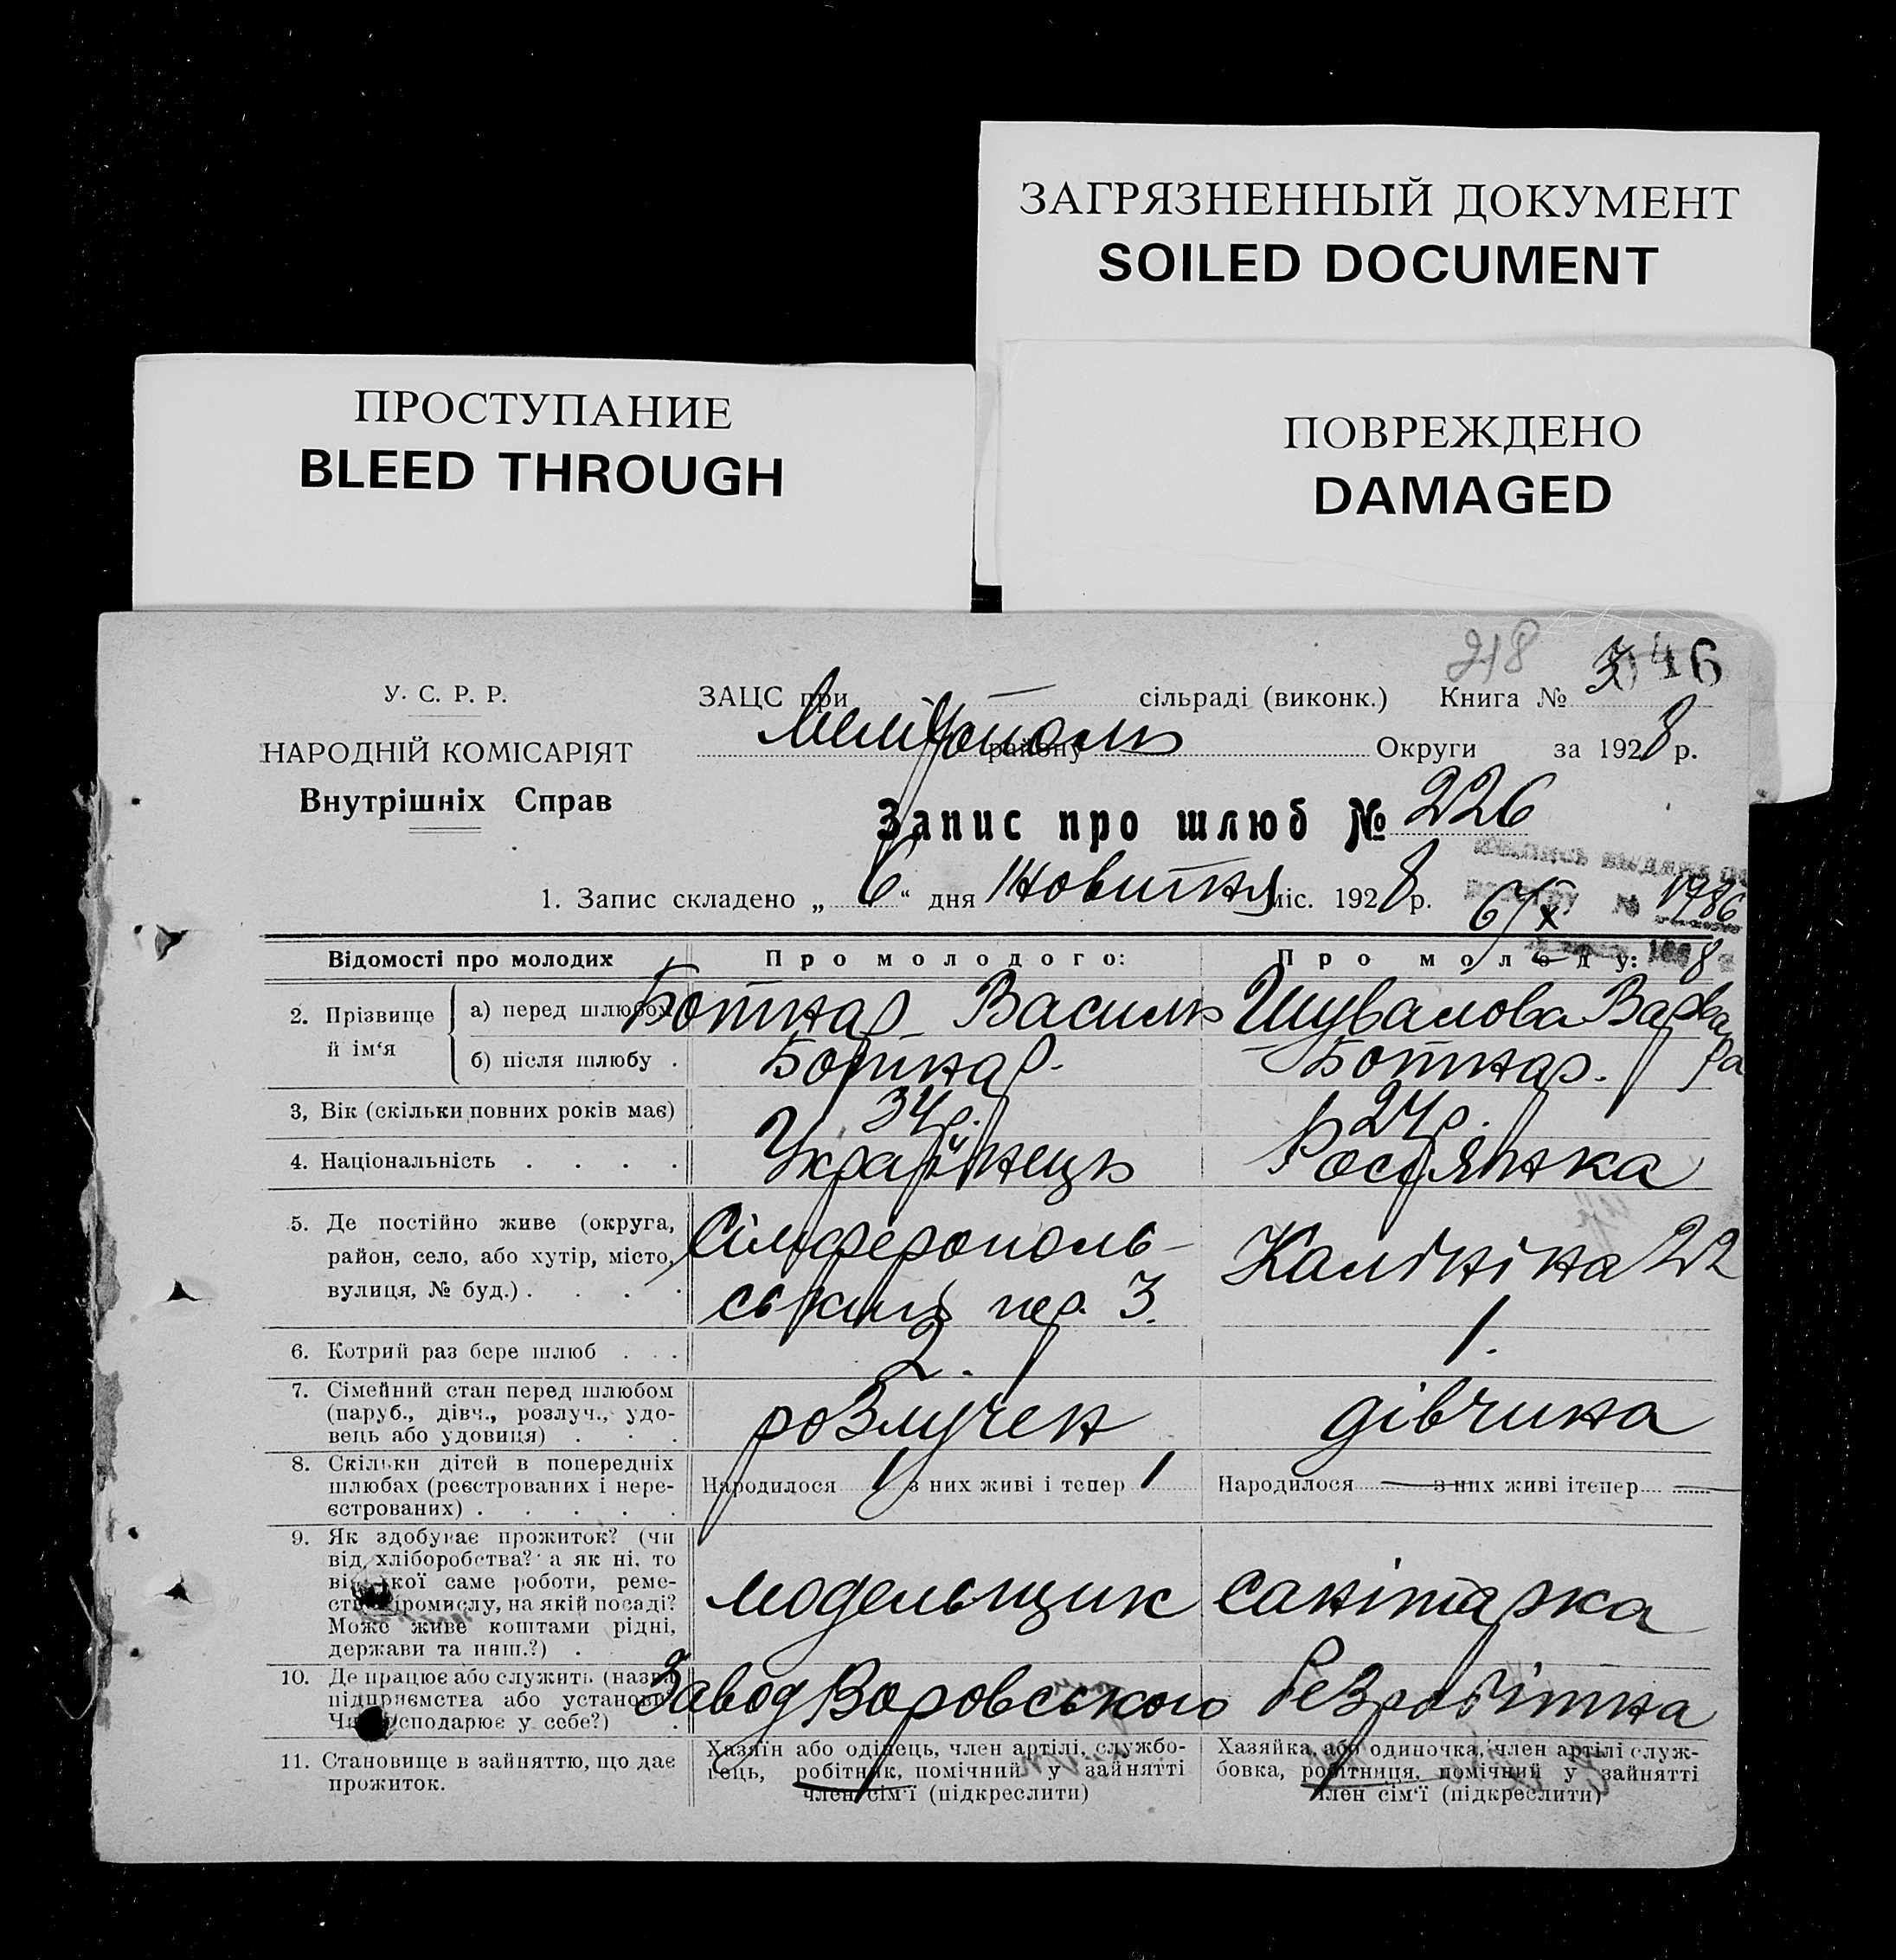 ЗАГРЯЗНЕННЫЙ ДОКУМЕНТ
SOILED DOCUMENT
ПРОСТУПАНИЕ
BLEED THROUGH
ПОВРЕЖДЕНО
DAMAGED
218
46
У. С. Р. Р.
НАРОДНІЙ КОМІСАРІЯТ
Внутрішніх Справ
ЗАЦС при — сільраді (виконк.) Книга №
Мелітополь району Округи за 1928 р.
Запис про шлюб № 226
1. Запис складено „ 6 “ дня Жовтня міс. 1928 р.
Відомості про молодих
Про молодого:
Про молоду:
2. Прізвище й ім‘я
а) перед шлюбом
Ботнар Василь
Шувалова Варвара
б) після шлюбу .
Ботнар.
Ботнар.
3, Вік (скільки повних років має)
34 р.
24 р.
4. Національність . . . .
Українець
Росіянка
5. Де постійно живе (округа,
район, село, або хутір, місто,
вулиця, № буд.) . . . .
Сімферополь-
ський пер. 3.
Калініна 22
6. Котрий раз бере шлюб . . .
2.
1.
7. Сімейний стан перед шлюбом
(паруб., дівч., розлуч., удо-
вець або удовиця) . . .
розлучен
дівчина
8. Скільки дітей в попередніх
шлюбах (реєстрованих і нере-
єстрованих) . . . . .
Народилося 1 з них живі і тепер 1
Народилося — з них живі ітепер —
9. Як здобуває прожиток? (чи
від хліборобства? а як ні, то
від якої саме роботи, реме-
ства, промислу, на якій посаді?
Може живе коштами рідні,
держави та инш.?) .
модельщик
санітарка
10. Де працює або служить (назва
підприємства або установи?
Чи господарює у себе?) .
Завод Воровського
безробітна
11. Становище в зайняттю, що дає
прожиток.
Хазяїн або одінець, член артілі, службо-
вець, робітник, помічний у зайнятті
член сім‘ї (підкреслити)
Хазяйка, або одиночка, член артілі служ-
бовка, робітниця, помічний у зайнятті
член сім‘ї (підкреслити)